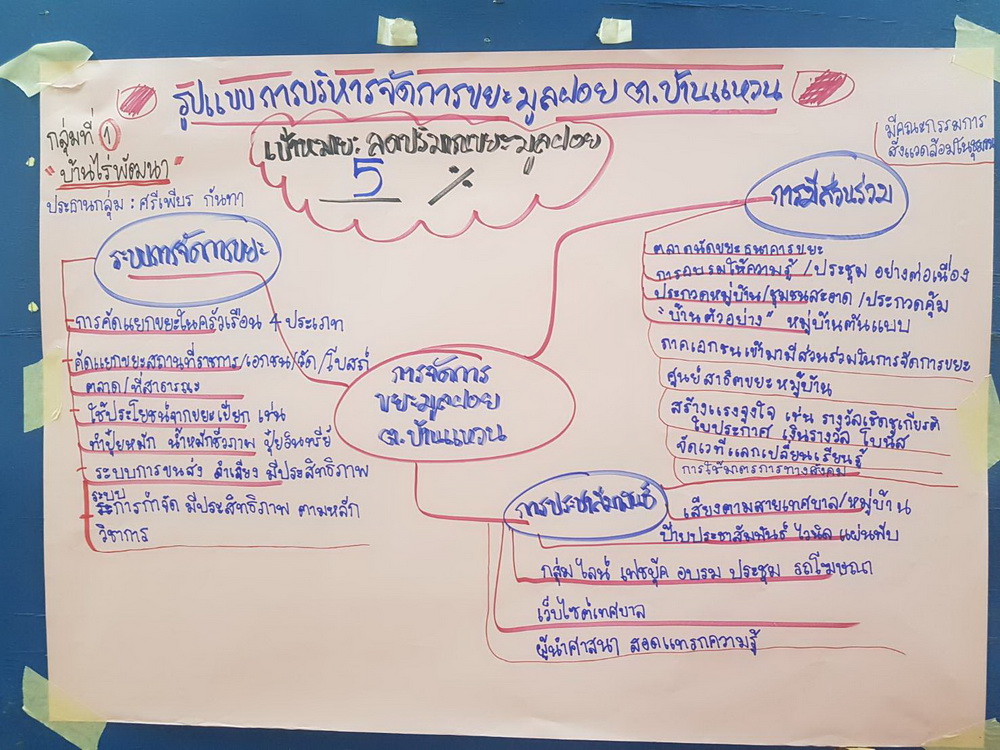 รูปแบบการบริหารจัดการขยะมูลฝอย ต.บ้านแหวน
กลุ่มที่ 1
"บ้านไร่พัฒนา"
ประธานกลุ่ม : ศรีเพียร กันทา
เป้าหมาย: ลดปริมาณขยะมูลฝอย
5 %
มีคณะกรรมการ
สิ่งแวดล้อมในชุมชน
การจัดการ
ขยะมูลฝอย
ต.บ้านแหวน
ระบบการจัดการขยะ
การคัดแยกขยะในครัวเรือน 4 ประเภท
คัดแยกขยะสถานที่ราชการ/เอกชน/วัด/โบสถ์
ตลาด/ที่สาธารณะ
ใช้ประโยชน์จากขยะเปียก เช่น
ทำปุ๋ยหมัก น้ำหมักชีวภาพ ปุ๋ยอินทรีย์
ระบบการขนส่ง ลำเลียง มีประสิทธิภาพ
ระบบ
การกำจัด มีประสิทธิภาพ ตามหลัก
วิชาการ
การมีส่วนร่วม
ตลาดนัดขยะธนาคารขยะ
การอบรมให้ความรู้ /ประชุม อย่างต่อเนื่อง
ประกวดหมู่บ้าน/ชุมชนสะอาด/ประกวดคุ้ม
"บ้านตัวอย่าง" หมู่บ้านต้นแบบ
ภาคเอกชนเข้ามามีส่วนร่วมในการจัดการขยะ
ศูนย์สาธิตขยะหมู่บ้าน
สร้างแรงจูงใจ เช่น รางวัลเชิดชูเกียรติ
ใบประกาศ เงินรางวัล โบนัส
จัดเวทีแลกเปลี่ยนเรียนรู้
การใช้มาตรการทางสังคม
การประชาสัมพันธ์
เสียงตามสายเทศบาล/หมู่บ้าน
ป้ายประชาสัมพันธ์ ไวนิล แผ่นพับ
กลุ่มไลน์ เฟซบุ๊ค อบรม ประชุม รถโฆษณา
เว็บไซต์เทศบาล
ผู้นำศาสนา สอดแทรกความรู้